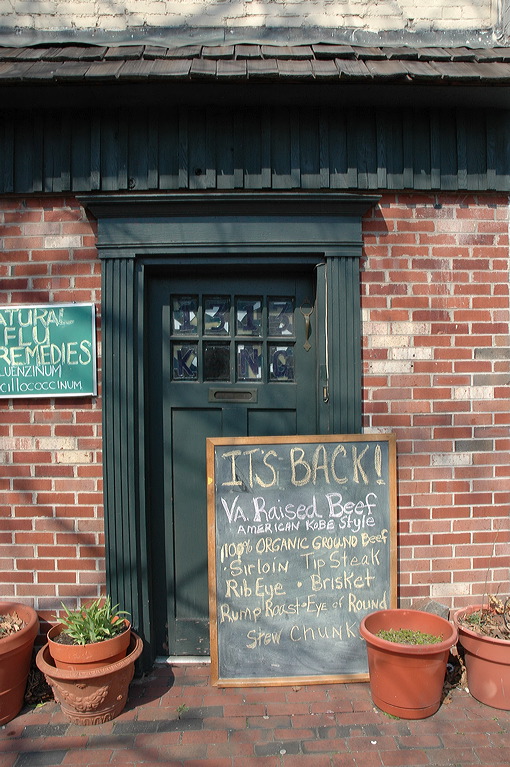 NATURAL
FLU
REMEDIES
1312
KING
IT'S BACK!
VA. Raised Beef
AMERICAN KOBE Style
100% ORGANIC GROUND Beef
• Sirloin Tip Steak
Rib Eye • Brisket
Rump Roast • Eye of Round
Stew Chunks